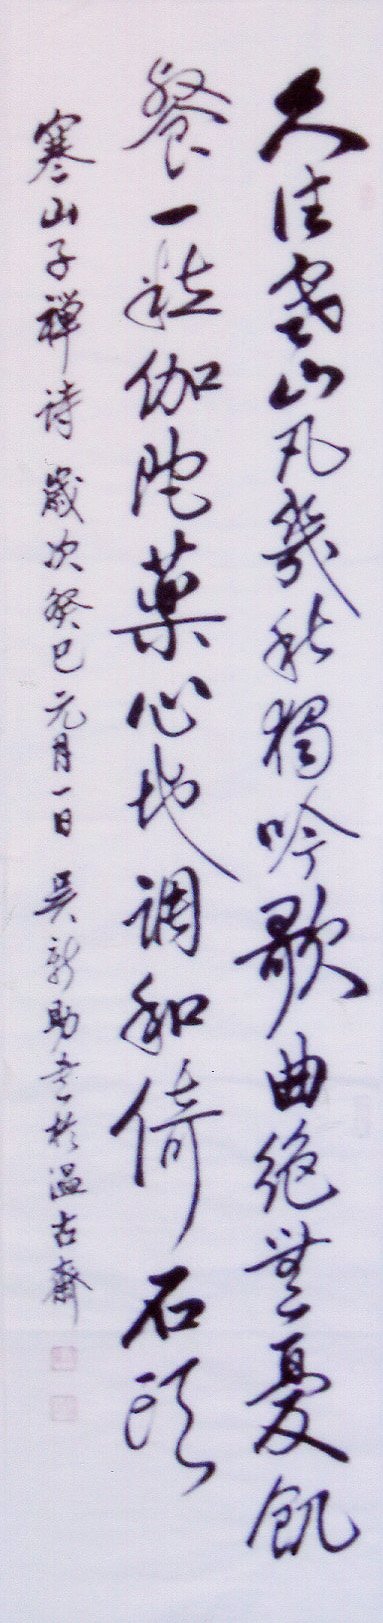 久住寒山凡幾秋獨吟歌曲絕無憂飢
餐一粒伽陀藥心地調和倚石頭
寒山子禅诗 歲次癸巳元月一日 吴新助書於温古齋